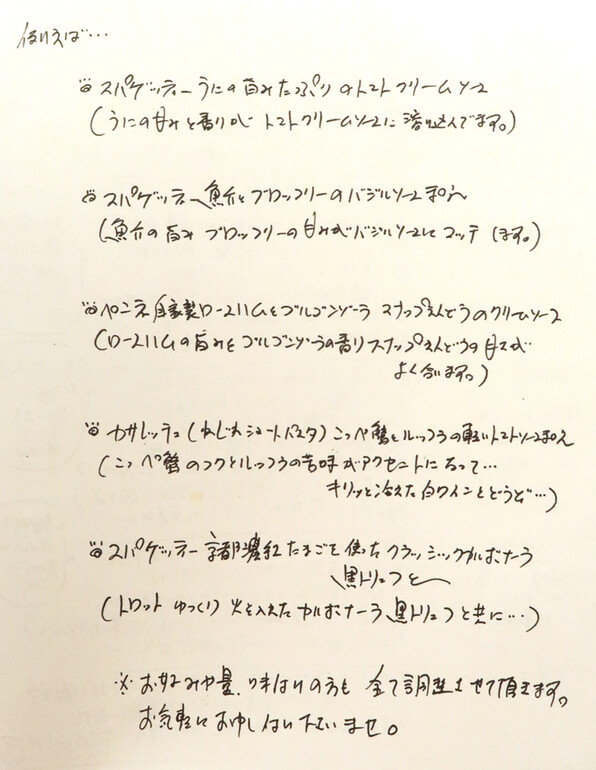 例えば…
スパゲッティーうにの旨みたっぷりのトマトクリームソース
(うにの甘みと香りがトマトクリームソースに溶け込んでます。)
スパゲッティー魚介とブロッコリーのバジルソース和え
(魚介の旨みブロッコリーの甘みがバジルソースにマッチします。)
ペンネ自家製ロースハムとゴルゴンゾーラ スナップえんどうのクリームソース
(ロースハムの旨みとゴルゴンゾーラの香りスナップえんどうの甘さが
よく合います。)
カサレッチェ(ねじれショートパスタ)こっぺ蟹とルッコラの軽いトマトソース和え
(こっぺ蟹のコクとルッコラの苦味がアクセントになって…
キリッと冷えた白ワインとどうぞ…)
スパゲッティー 濃紅たまごを使ったクラッシックカルボナーラ
黒トリュフと
(トロットゆっくり火を入れたカルボナーラ黒トリュフと共に…)
※お好みや量、味はいの方も全て調整させて頂きます。
お気軽にお申し 下さいませ。